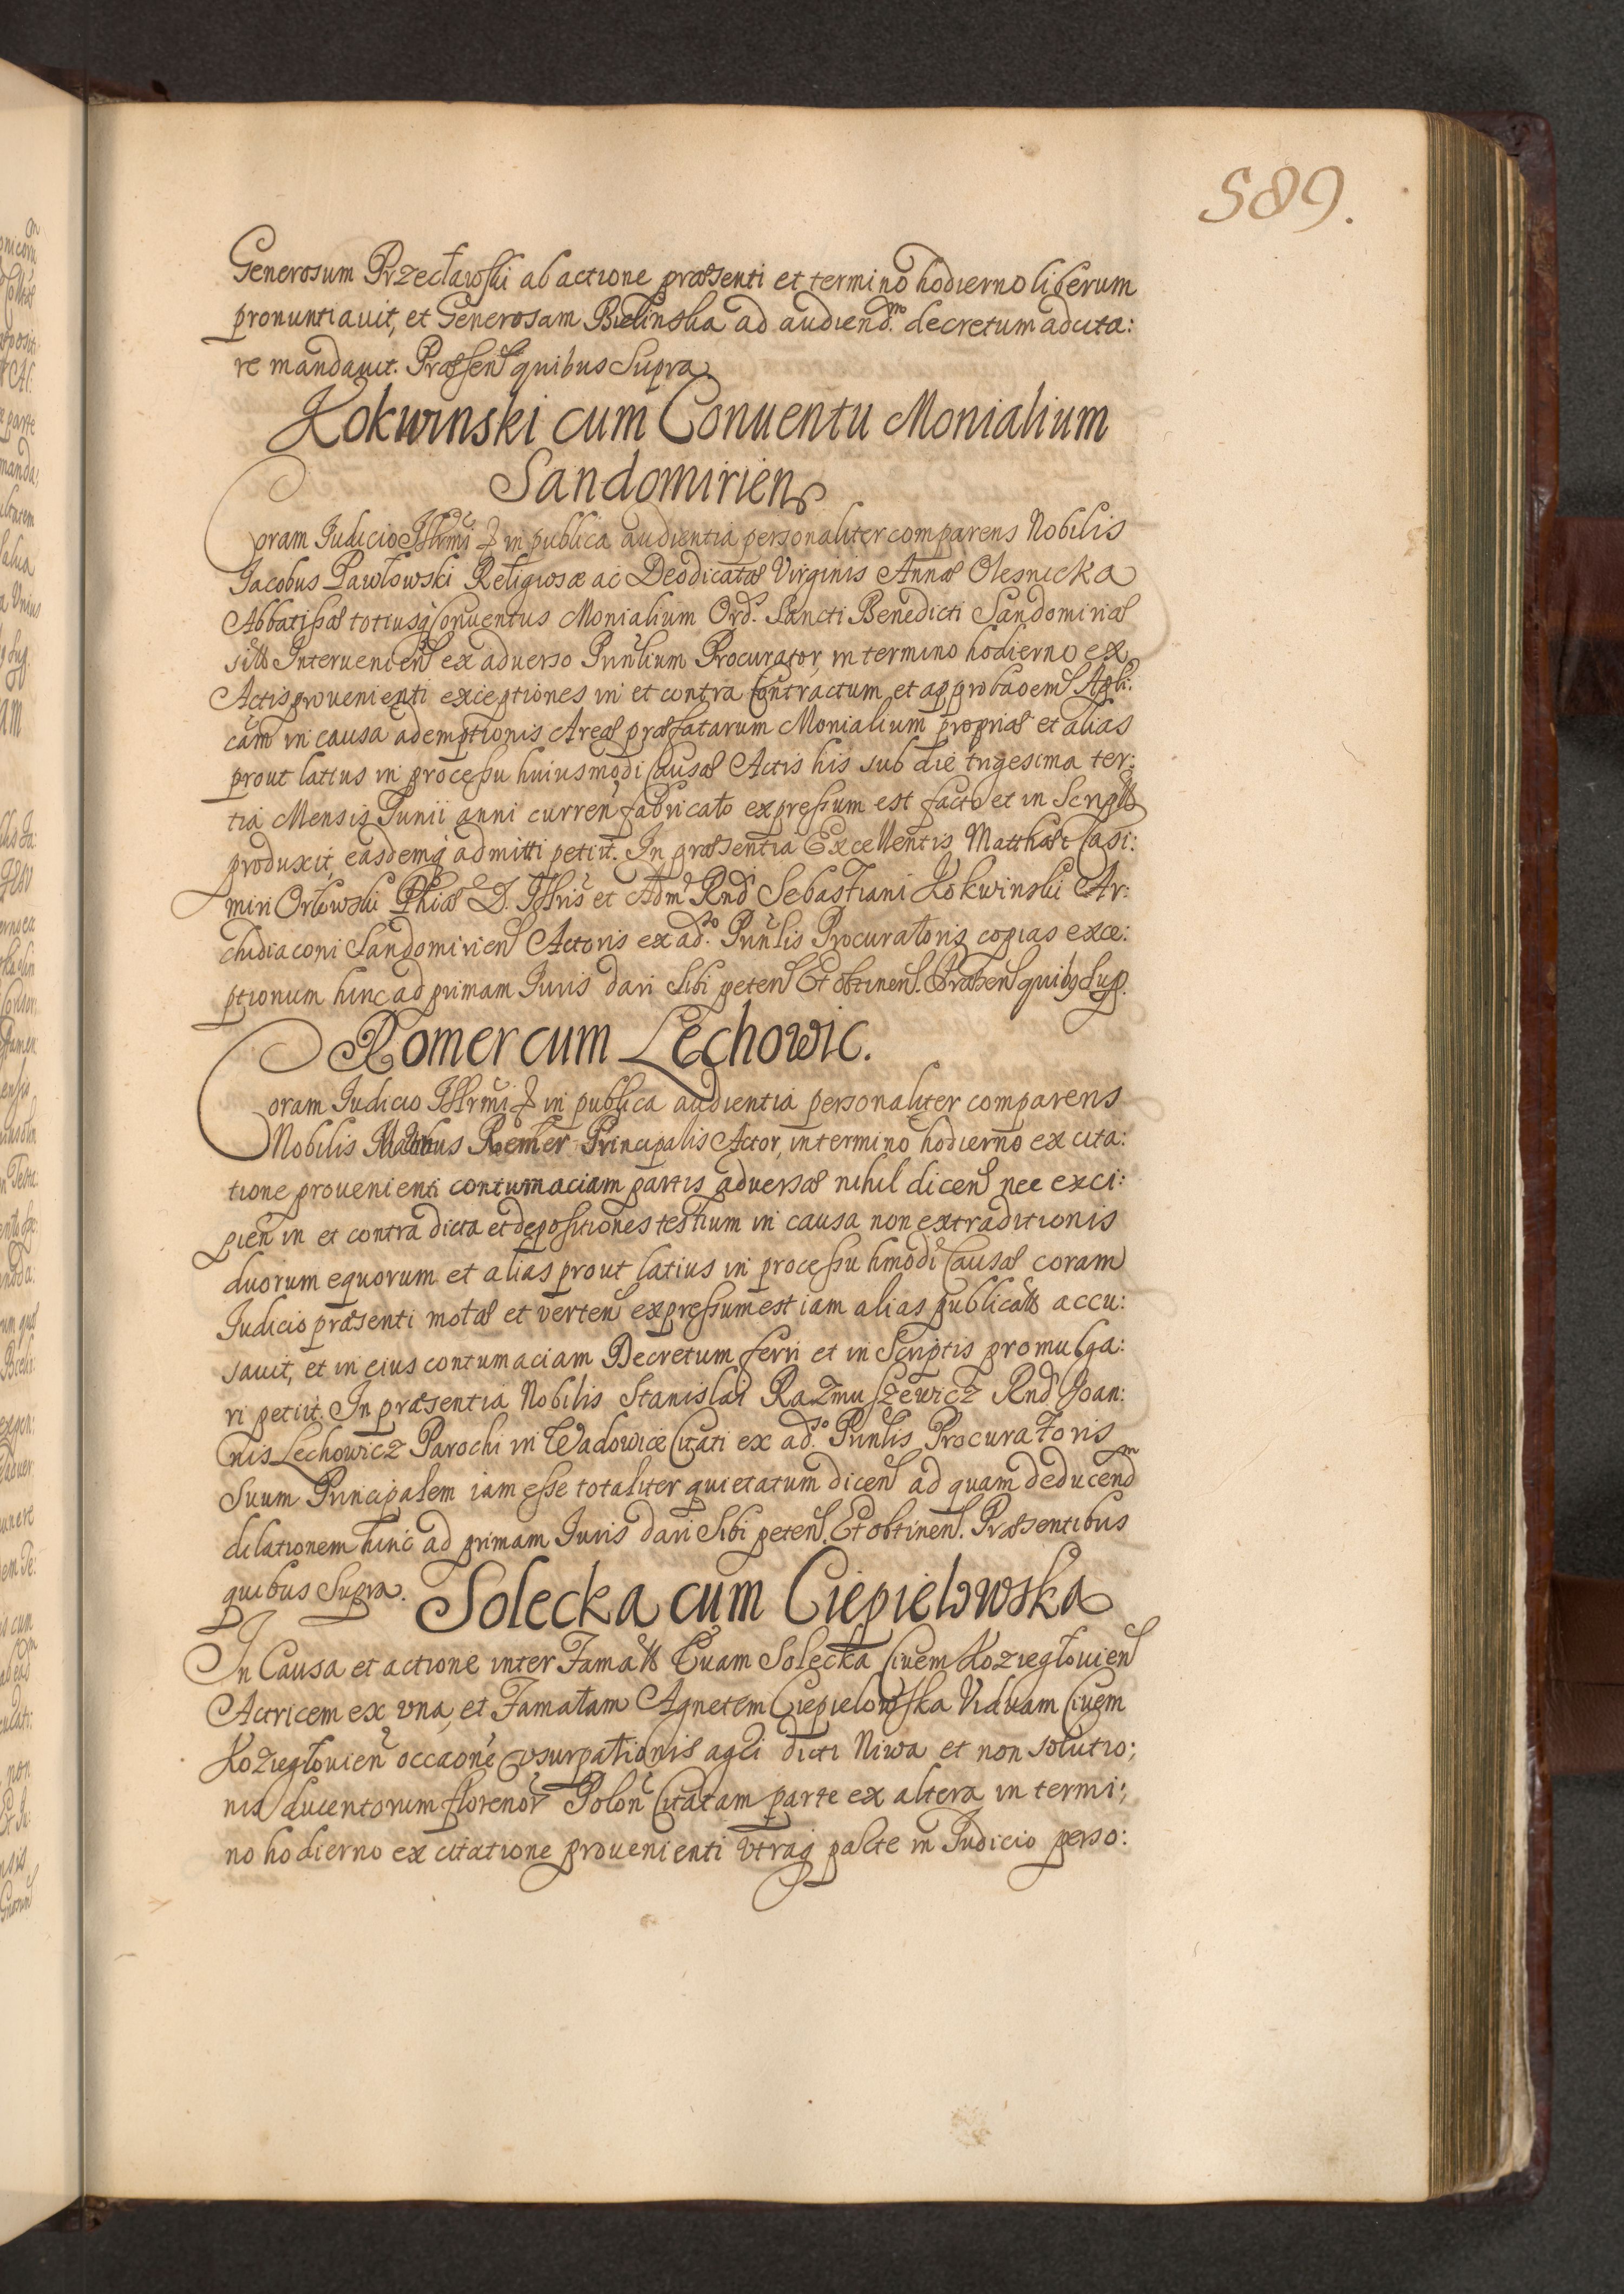 589.
Generosum Przecławski ab actione præsenti et termino hodierno liberum
pronuntiavit, et Generosam Bielinska ad audiend.m decretum adcita:
re mandavit. Præsen quibus Supra.
Kokwinski cum Conventu Monialium
Sandomirien
Coram Judicio Illrmi in publica audientia personaliter comparens Nobilis
Jacobus Pawłowski Religiosæ ac Deodicatæ Virginis Annæ Olesnicka
Abbatissæ totiusq Conventus Monialium Ord. Sancti Benedicti Sandomiriæ
Intervenien ex adverso Prinlium Procurator, in termino hodierno ex
Actis provenienti exceptiones in et contra Contractum et approbaoem Apli:
cam in causa ademptionis Areæ præfatarum Monialium propriæ et alias
prout latius in processu huiusmodi Causæ Actis his sub die trigesima ter:
tia Mensis Junii anni curren fabricato expressum est facto et in Scriptis
produxit, easdemq admitti petiit. In præsentia Excellentis Matthæi Casi:
miri Orłowski Phiæ D. Illris et Adm Rndi Sebastiani Kokwinski Ar:
chidiaconi Sandomirien Actoris ex ad.so Prinlis Procuratoris copias exce:
ptionum hinc ad primam Juris dari Sibi peten Et obtinen. Præsen quibq Sup.
Romer cum Lechowic.
Coram Judicio Illrmi in publica audientia personaliter comparens
Nobilis Romer Principalis Actor, in termino hodierno ex cita:
tione provenienti contumaciam partis adversæ nihil dicen nec exci:
pien in et contra dicta et depositiones testium in causa non extraditionis
duorum equorum et alias prout latius in processu hmodi Causæ coram
Judicio præsenti motæ et verten expressum est iam alias publicatis accu:
savit, et in eius contumaciam Decretum ferri et in Scriptis promulga:
ri petiit. In præsentia Nobilis Stanislai Razmuszewicz Rndi Joan:
nis Lechowicz Parochi in Wadowice Citati ex ad.so Prinlis Procuratoris
Suum Principalem iam esse totaliter quietatum dicen ad quam deducend.m
dilationem hinc ad primam Juris dari Sibi peten. Et obtinen. Præsentibus
quibus Supra.
Solecka cum Ciepielowska
In Causa et actione inter Famatam Evam Solecka Civem Kozięgłovien
Actricem ex una, et Famatam Agnetem Ciepielowska Viduam Civem
Kozięgłovien occaone usurpationis agri dicti Niwa et non solutio:
nis ducentorum florenor Polon Citatam parte ex altera in termi:
no hodierno ex citatione provenienti utraq parte in Judicio perso: